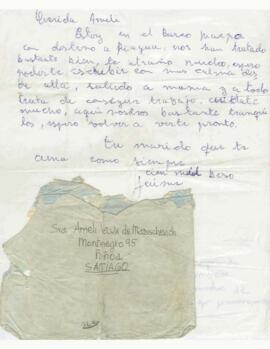 Querida Ameli
Estoy en el Barco Maipo
con destino a Pisagua, nos han tratado
bastante bien, te extraño mucho, espero
poderte escribir con mas calma desde
de alla, saludo a mama y a todos
trata de conseguir trabajo, cuidate
mucho, aqui nosotros bastante tranqui
los, espero volver a verte pronto.
Tu marido que te
ama como siempre
Beso
Sra Ameli de
Montenegro 95
Ñuñoa
SANTIAGO